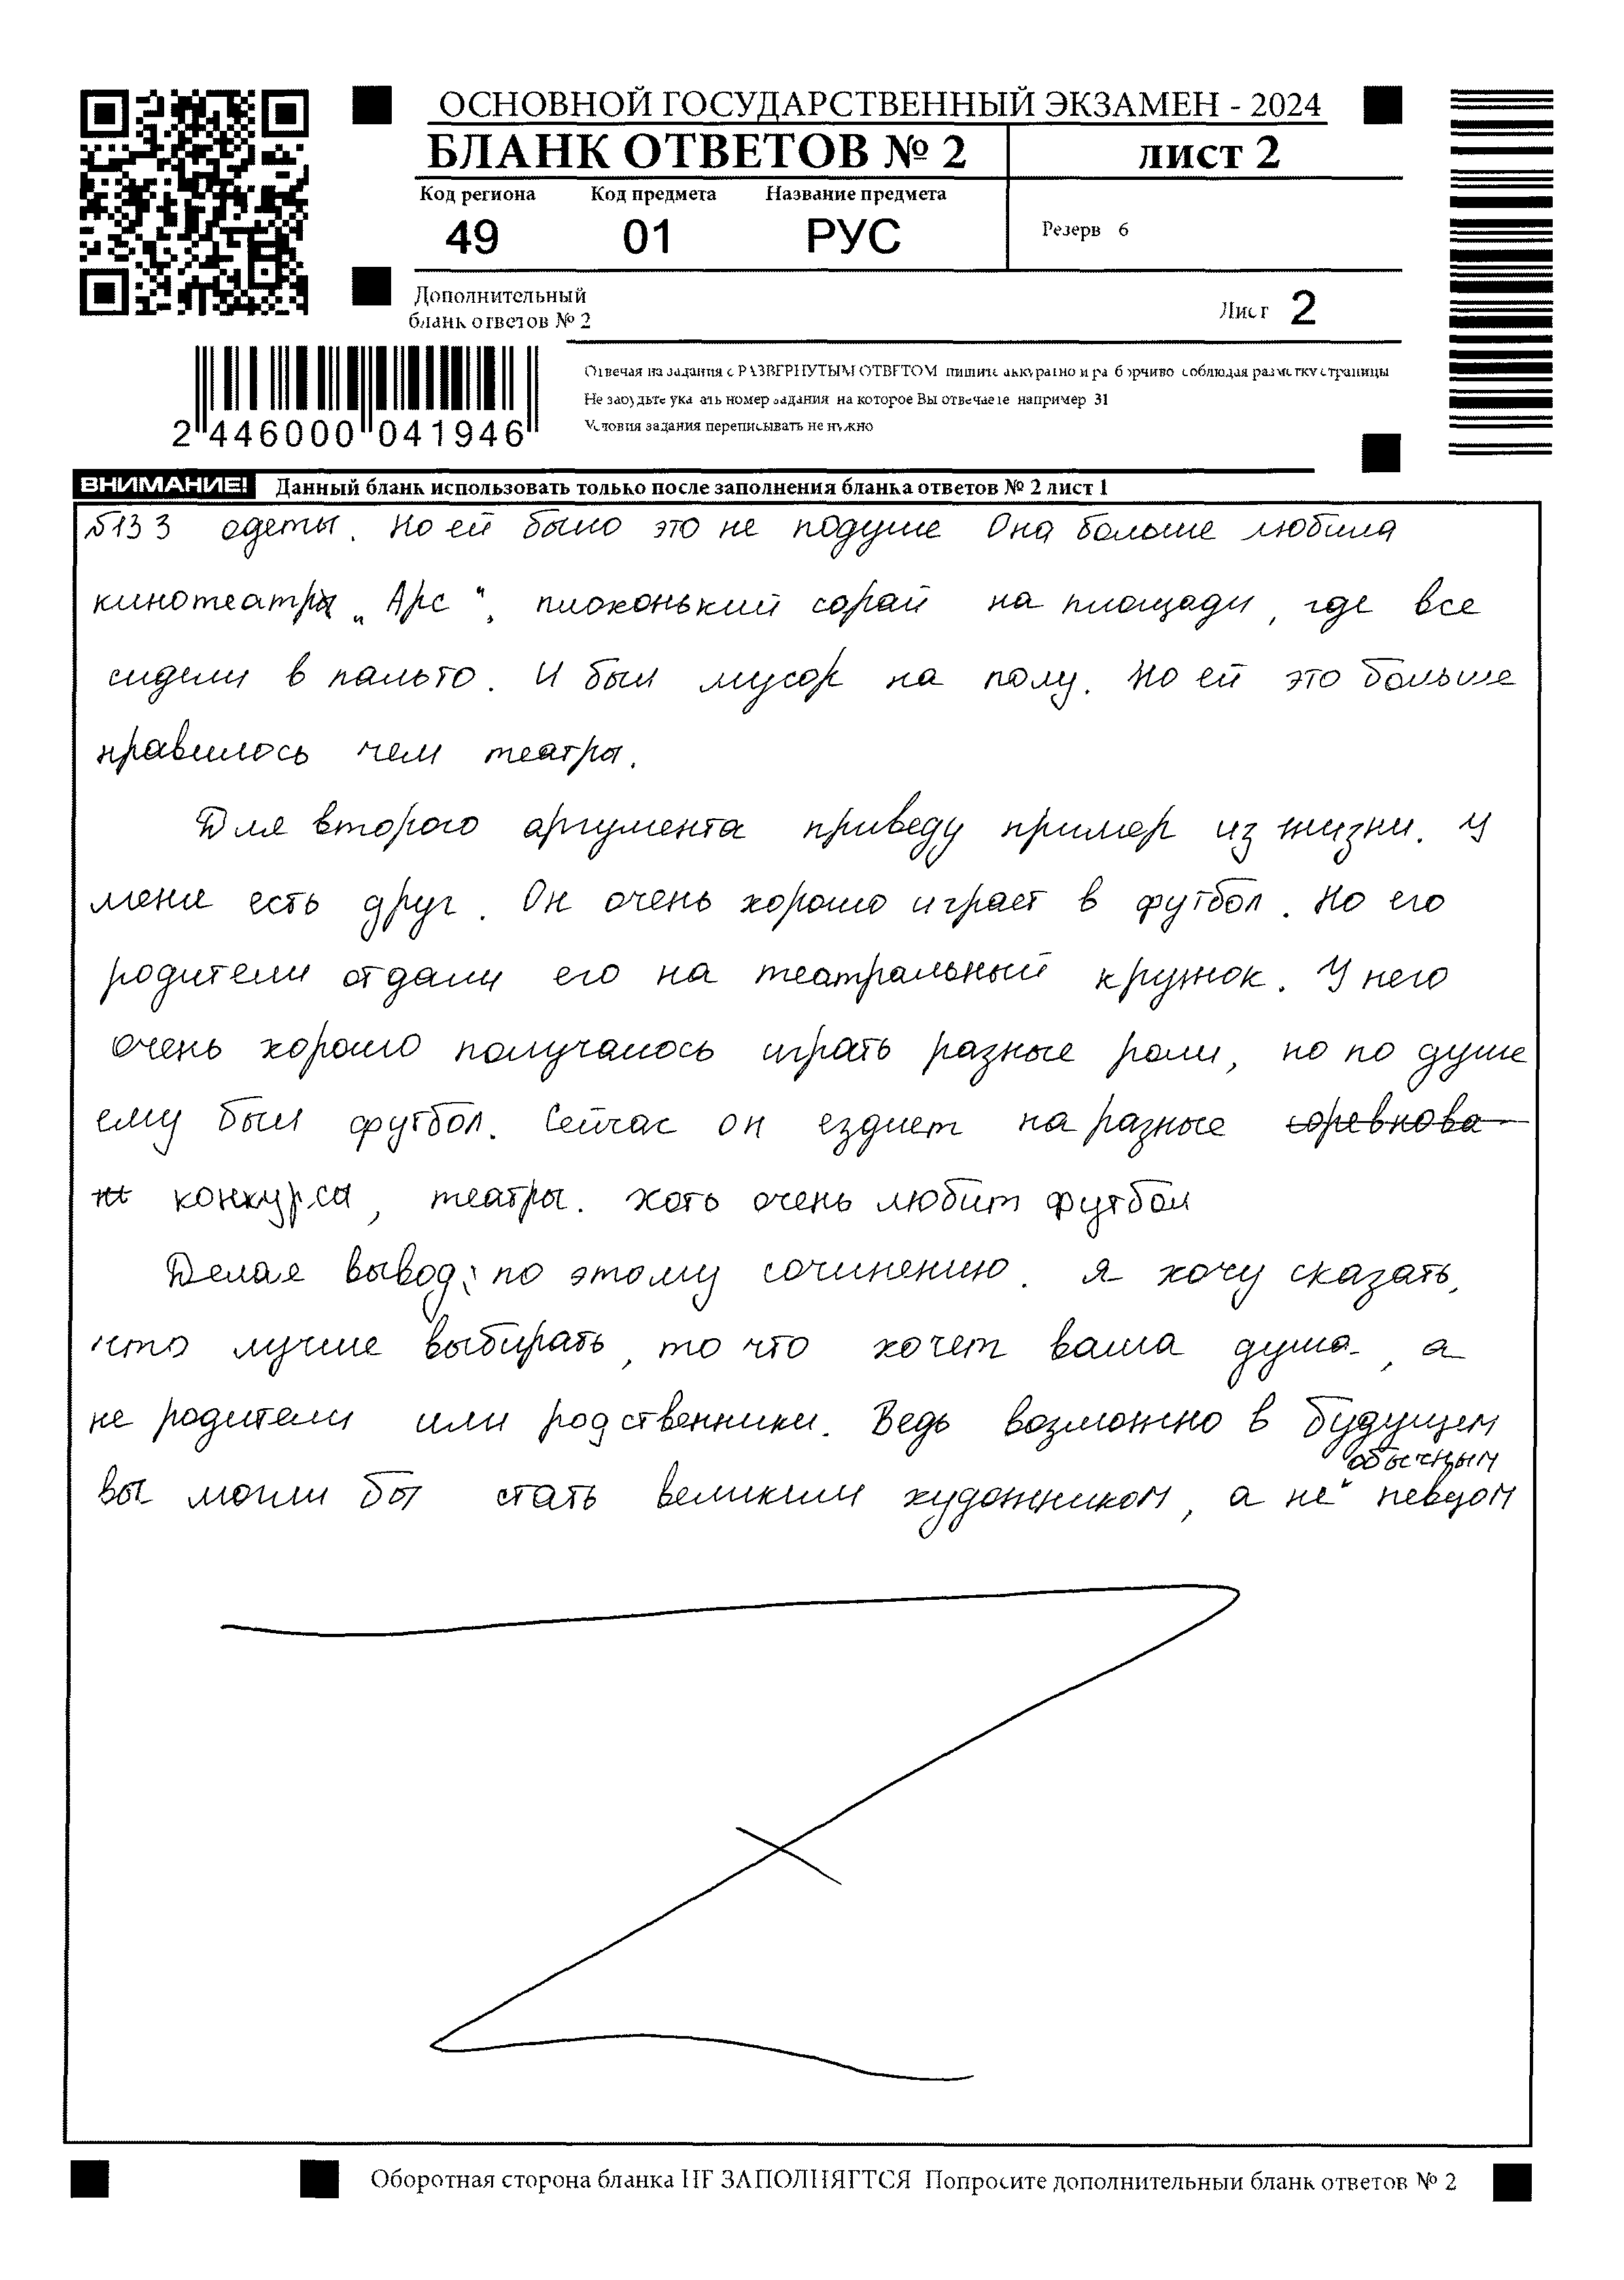 ОСНОВНОЙ ГОСУДАРСТВЕННЫЙ ЭКЗАМЕН - 2024
БЛАНК ОТВЕТОВ № 2 ЛИСТ 2
Код региона Код предмета Название предмета
49 01 РУС
Резерв 6
Дополнительный
бланк ответов № 2
Лист 2
Отвечая на задания с РАЗВЕРНУТЫМ ОТВЕТОМ пишите аккуратно и разборчиво соблюдая разметку страницы
Не забудьте указать номер задания на которое Вы отвечаете например 31
Условия задания переписывать не нужно
2 446000 041946
ВНИМАНИЕ! Данный бланк использовать только после заполнения бланка ответов № 2 лист 1
№13 3 одеты. Но ей было это не подуше Она больше любила
кинотеатры „Арс“, плохонький сарай на площади, где все
сидели в пальто. И был мусор на полу. Но ей это больше
нравилось чем театры.
Для второго аргумента приведу пример из жизни. У
меня есть друг. Он очень хорошо играет в футбол. Но его
родители отдали его на театральный кружок. У него
очень хорошо получалось играть разные роли, но по душе
ему был футбол. Сейчас он ездиет на разные соревнова
ни конкурсы, театры. Хоть очень любит футбол
Делая вывод, по этому сочинению. я хочу сказать,
что лучше выбирать, то что хочет ваша душа, а
не родители или родственники. Ведь возможно в будущем
обычным
вы могли бы стать великим художником, а не певцом
Оборотная сторона бланка НЕ ЗАПОЛНЯЕТСЯ Попросите дополнительный бланк ответов № 2